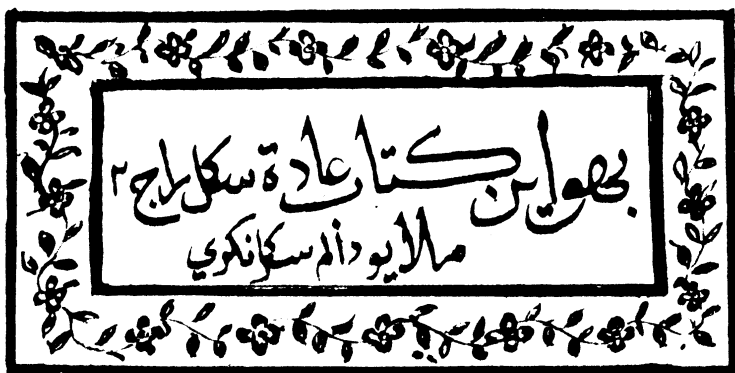 بهوا اين كتاب عادة سكل راج٢
ملايو دالم سكل نكري